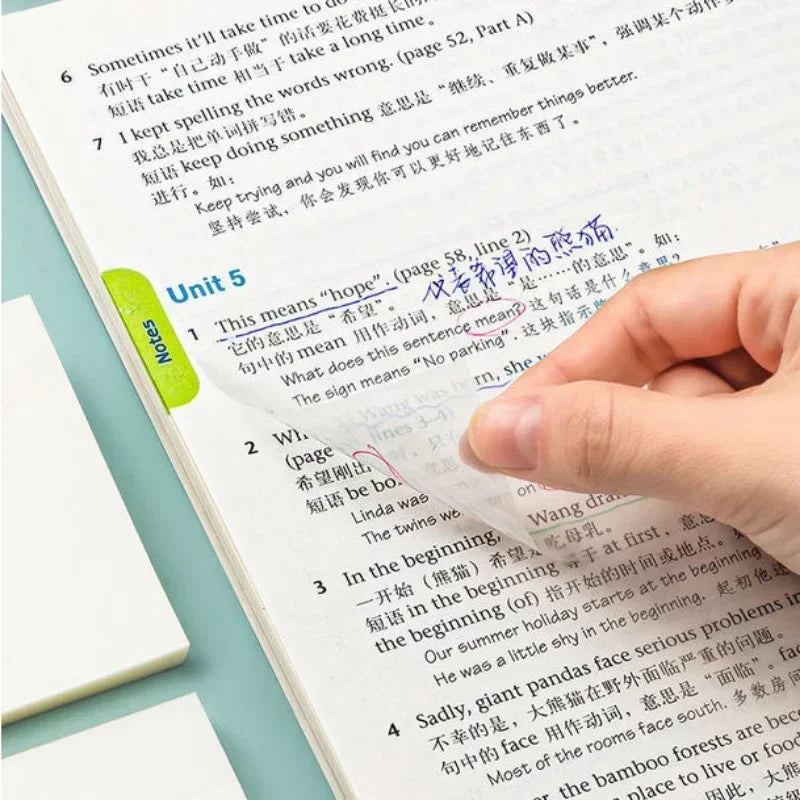 6 Sometimes it'll take time to do
有时干“自己动手做”的话要花费挺长的
短语 take time 相当于 take a long time。
7 I kept spelling the words wrong. (page 52, Part A)
我总是把单词拼写错。
短语 keep doing something 意思是“继续、重复做某事”，强调某个动作
进行。如：
Keep trying and you will find you can remember things better.
坚持尝试，你会发现你可以更好地记住东西了。
Unit 5
Notes
1 This means “hope”. (page 58, line 2) 代表希望的熊猫
它的意思是“希望”。
句中的 mean 用作动词，意思是“是……的意思”。如：
What does this sentence mean? 这句话是什么意思？
The sign means “No parking”. 这块指示
2 Wh Xi Wang was born, she
(page lines 3-4)
希望刚出 时，只
短语 be bo 意思
Linda was
The twins we on
Wang dran
吃母乳。
3 In the beginning,
一开始（熊猫）希望
短语 in the beginning 等于 at first，意思
the beginning (of) 指开始的时间或地点。
Our summer holiday starts at the beginning
He was a little shy in the beginning. 起初他
4 Sadly, giant pandas face serious problems in
不幸的是，大熊猫在野外面临严重的问题。
句中的 face 用作动词，意思是“面临”。fac
Most of the rooms face south. 多数房间
the bamboo forests are beco
place to live or food
因此，大熊